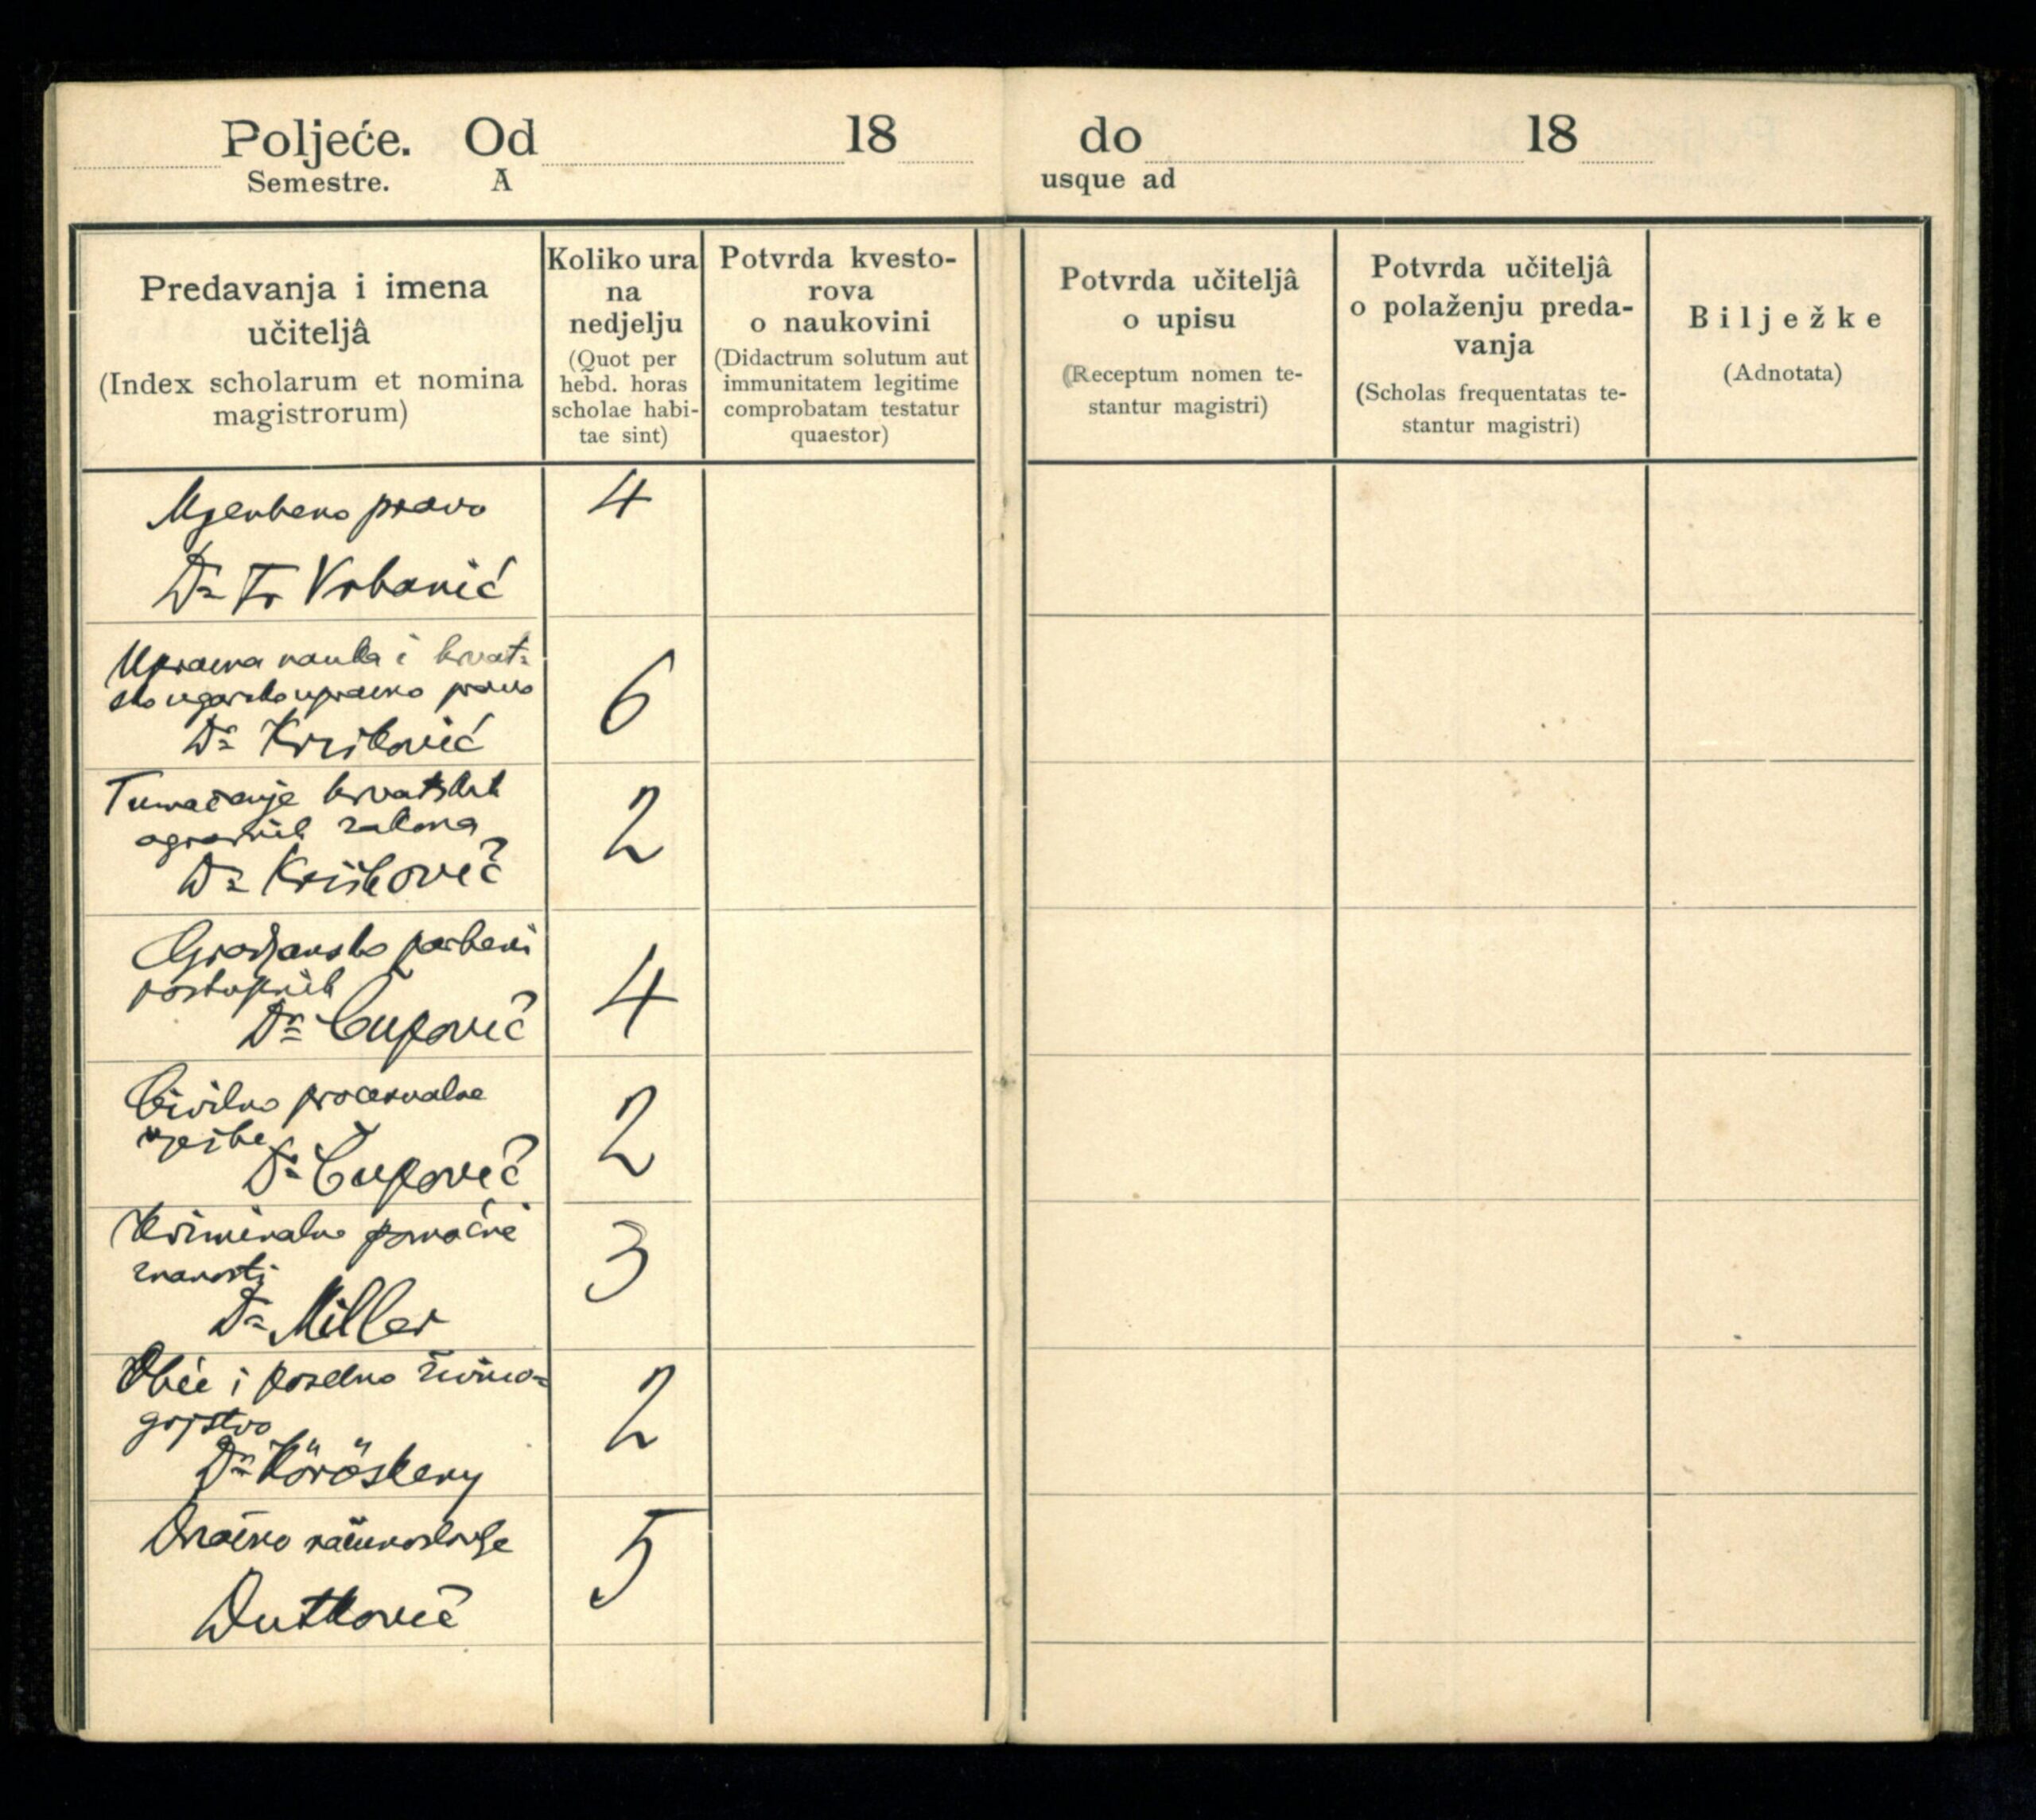 Poljeće. Od 18 do 18
Semestre. A usque ad
Predavanja i imena
učiteljâ
(Index scholarum et nomina
magistrorum)
Koliko ura
na
nedjelju
(Quot per
hebd. horas
scholae habi-
tae sint)
Potvrda kvesto-
rova
o naukovini
(Didactrum solutum aut
immunitatem legitime
comprobatam testatur
quaestor)
Potvrda učiteljâ
o upisu
(Receptum nomen te-
stantur magistri)
Potvrda učiteljâ
o polaženju preda-
vanja
(Scholas frequentatas te-
stantur magistri)
Bilježke
(Adnotata)
Mjenbeno pravo 4
Dr Fr Vrbanić
Upravna nauka i hrvat-
sko ugarsko upravno pravo 6
Dr Krišković
Tumačenje hrvatskih
agrarnih zakona 2
Dr Krišković
Gradjansko parbeni
postupnik 4
Dr Čupović
Civilno procesualne
vježbe 2
Dr Čupović
Kriminalno pomoćne
znanosti 3
Dr Miller
Obće i posebno živino-
gojstvo 2
Dr Köröskeny
Državno računoslovlje 5
Dutković